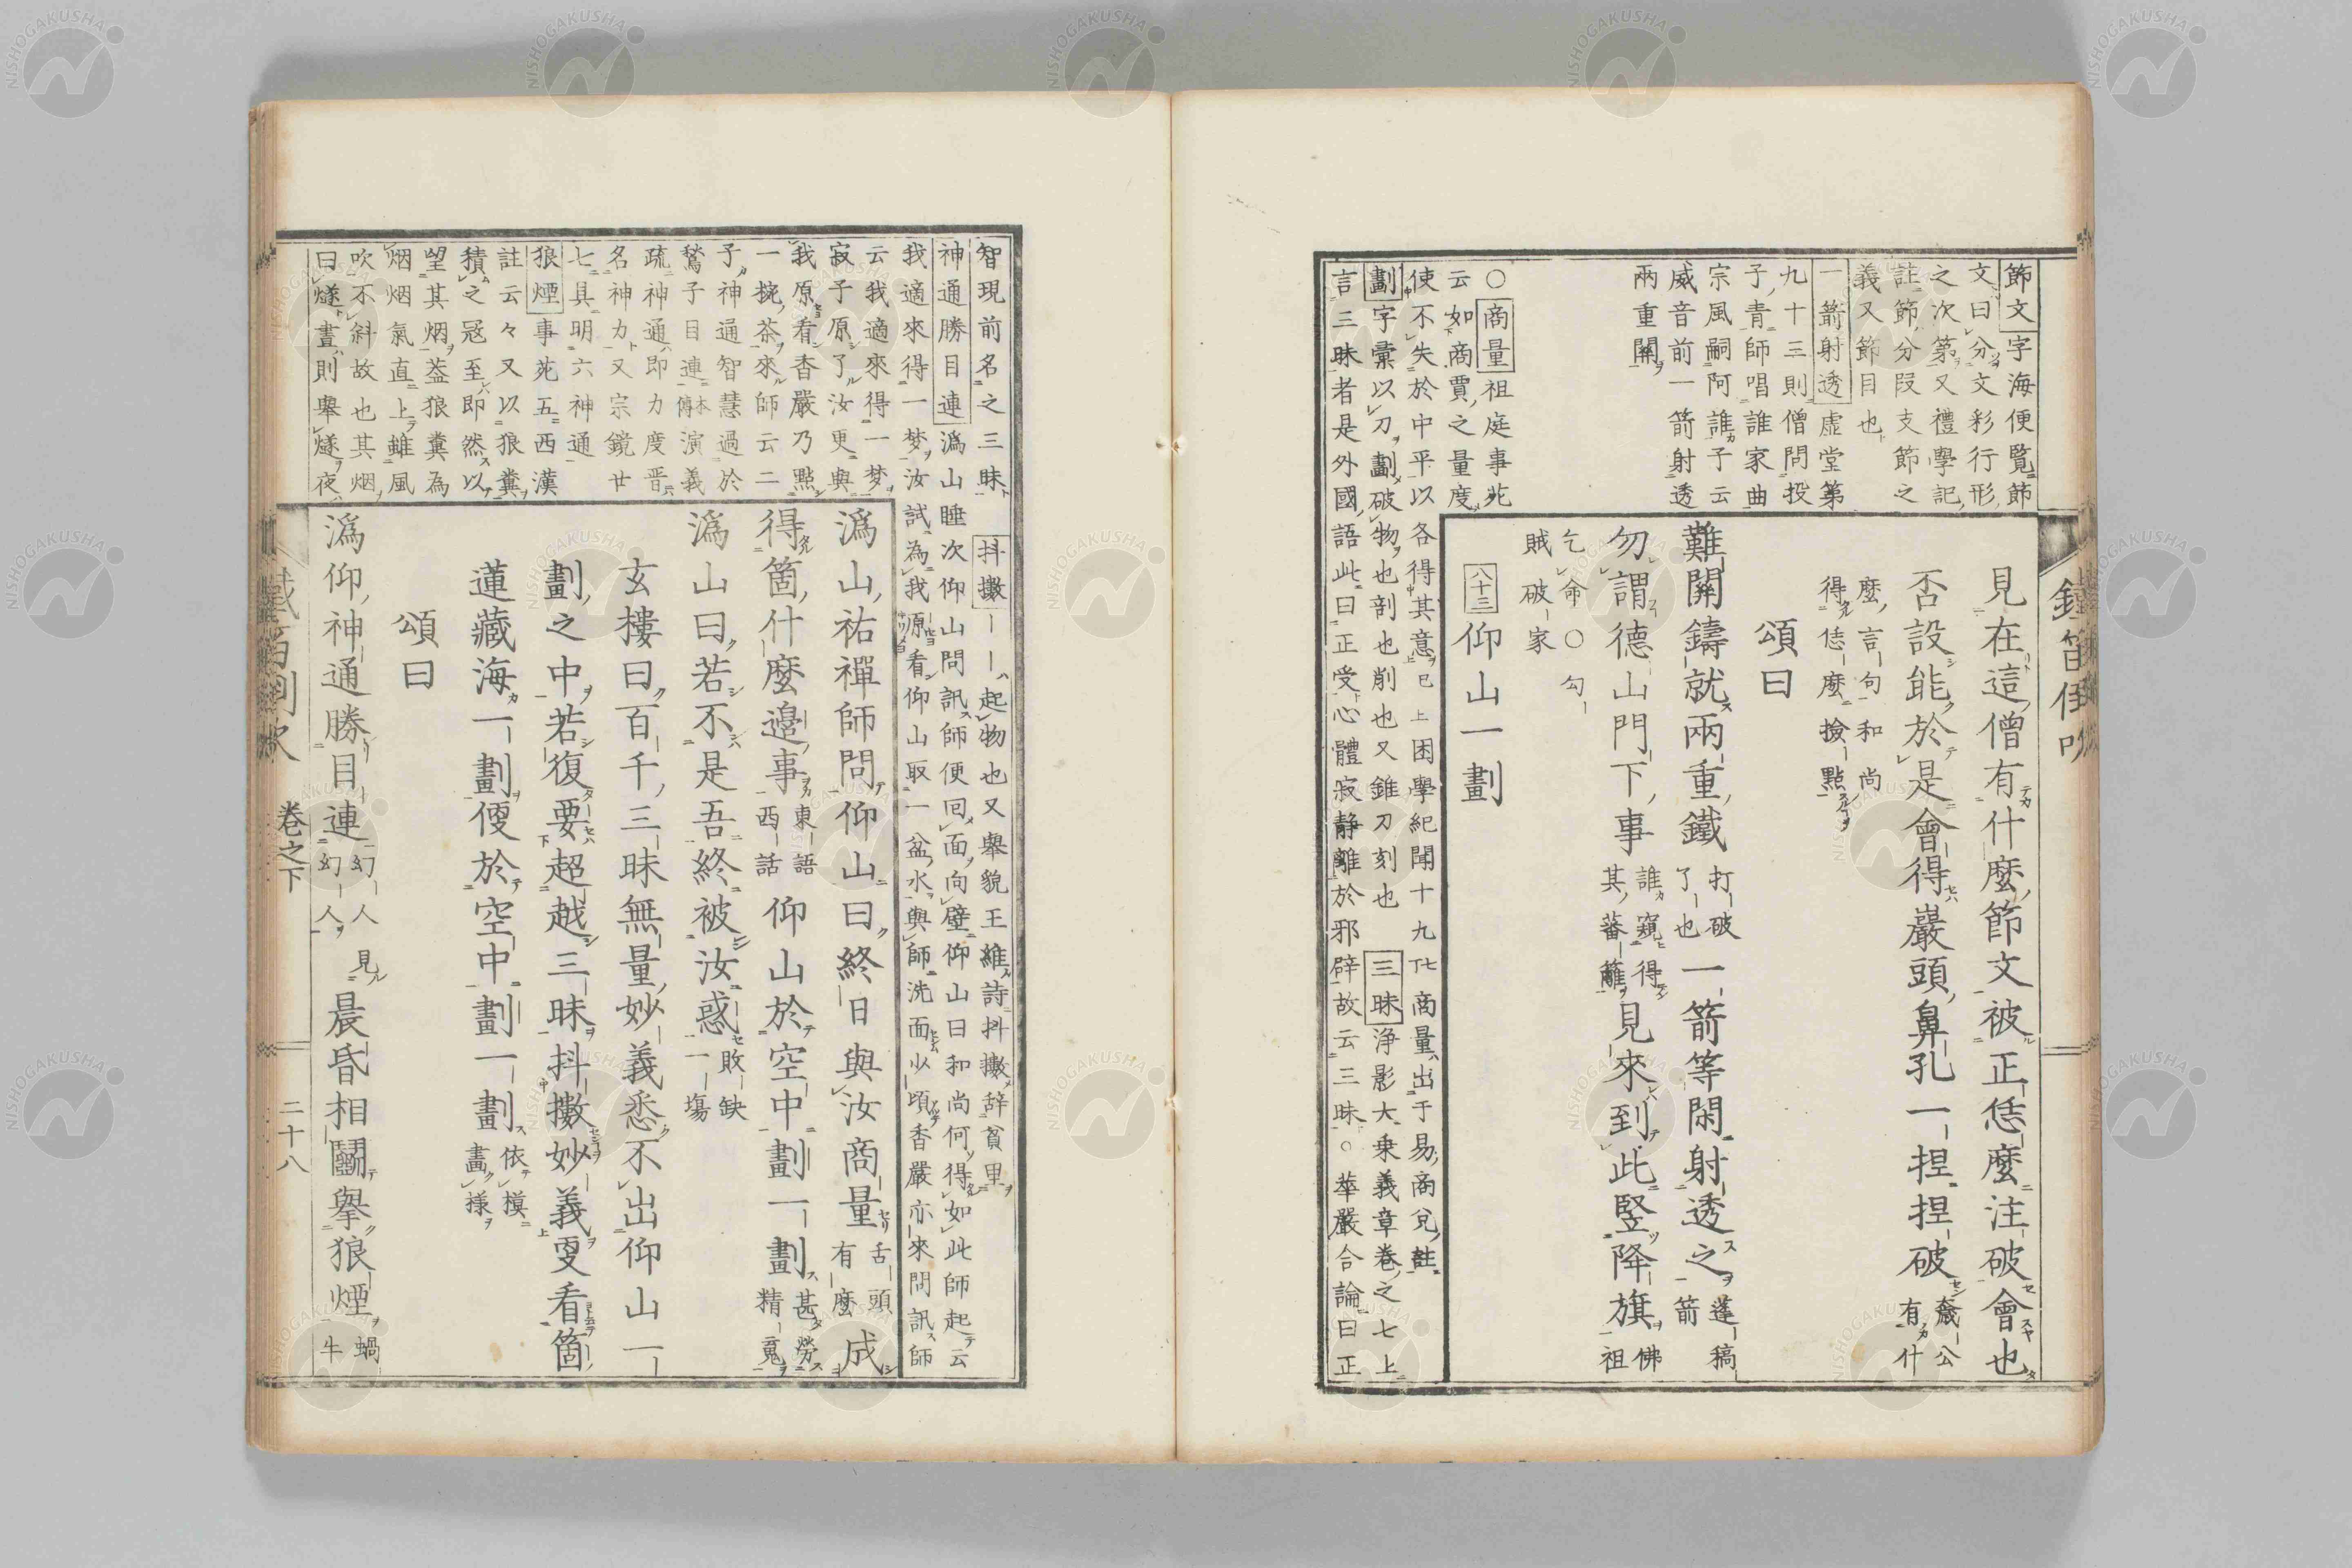 鐵笛倒吹
節文字海便覽節
文曰分文彩行形
之次第又禮學記
註節分段支節之
義又節目也
一箭射透虛堂第
九十三則僧問投
子青師唱誰家曲
宗風嗣阿誰子云
威音前一箭射透
兩重關
○商量祖庭事苑
云如商賈之量度
使不失於中平以各得其意已上困學紀聞十九
商量出于易商兌註
劃字彙以刀劃破物也剖也削也又錐刀刻也
三昧淨影大乘義章卷之七上
言三昧者是外國語此曰正受心體寂静離於邪辟故云三昧○華嚴合論曰正
見在這僧有什麼節文被正恁麼注破會也
否設能於是會得巖頭鼻孔一捏捏破
有什
麼言句和尚
得恁麼撿點
頌曰
難關鑄就兩重鐵打破了也一箭等閑射透之蓬稿箭
勿謂德山門下事誰窺得其蕃籬見來到此竪降旗佛祖
乞命○勾
賊破家
八十三仰山一劃
智現前名之三昧抖擻——起物也又舉貌王維詩抖擻辞貧里
神通勝目連溈山睡次仰山問訊師便回面向壁仰山曰和尚何得如此師起云
我適來得一夢汝試為我原看仰山取一盆水與師洗面少頃香嚴亦來問訊師
云我適來得一夢
寂子原了汝更與
我原看香嚴乃點
一椀茶來師云二
子神通智慧過於
鶖子目連本傳演義
疏神通即力度晋
名神力又宗鏡廿
七具明六神通
狼煙事苑五西漢
註云々又以狼糞
積之冦至即然以
望其烟葢狼糞為
烟烟氣直上雖風
吹不斜故也其烟
曰燧晝則舉燧夜
溈山祐禪師問仰山曰終日與汝商量舌頭有麼成
得箇什麼邊事東語西話仰山於空中劃一劃甚勞精䰟
溈山曰若不是吾終被汝惑敗缺一塲
玄樓曰百千三昧無量妙義悉不出仰山一
劃之中若復要超越三昧抖擻妙義更看箇
蓮藏海一劃便於空中劃一劃依模畫樣
頌曰
溈仰神通勝目連幻人見幻人晨昏相鬪擧狼煙蝸牛
卷之下
二十八